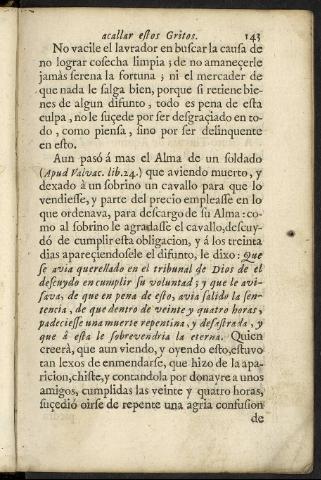 acallar estos Gritos. 143
No vacile el lavrador en buscar la causa de
no lograr cosecha limpia; de no amaneçerle
jamàs serena la fortuna; ni el mercader de
que nada le salga bien, porque si retiene bie-
nes de algun difunto, todo es pena de esta
culpa, no le suçede por ser desgraçiado en to-
do, como piensa, sino por ser delinquente
en esto.
Aun pasó á mas el Alma de un soldado
(Apud Valvac. lib.24.) que aviendo muerto, y
dexado à un sobrino un cavallo para que lo
vendiesse, y parte del precio empleasse en lo
que ordenava, para descargo de su Alma: co-
mo al sobrino le agradasse el cavallo, descuy-
dó de cumplir esta obligacion, y á los treinta
dias apareçiendosele el difunto, le dixo: Que
se avia querellado en el tribunal de Dios de el
descuydo en cumplir su voluntad; y que le avi-
sava, de que en pena de esto, avia salido la sen-
tencia, de que dentro de veinte y quatro horas,
padeciesse una muerte repentina, y desastrada, y
que à esta le sobrevendria la eterna. Quien
creerà, que aun viendo, y oyendo esto, estuvo
tan lexos de enmendarse, que hizo de la apa-
ricion, chiste, y contandola por donayre a unos
amigos, cumplidas las veinte y quatro horas,
suçedió oirse de repente una agria confusion
de